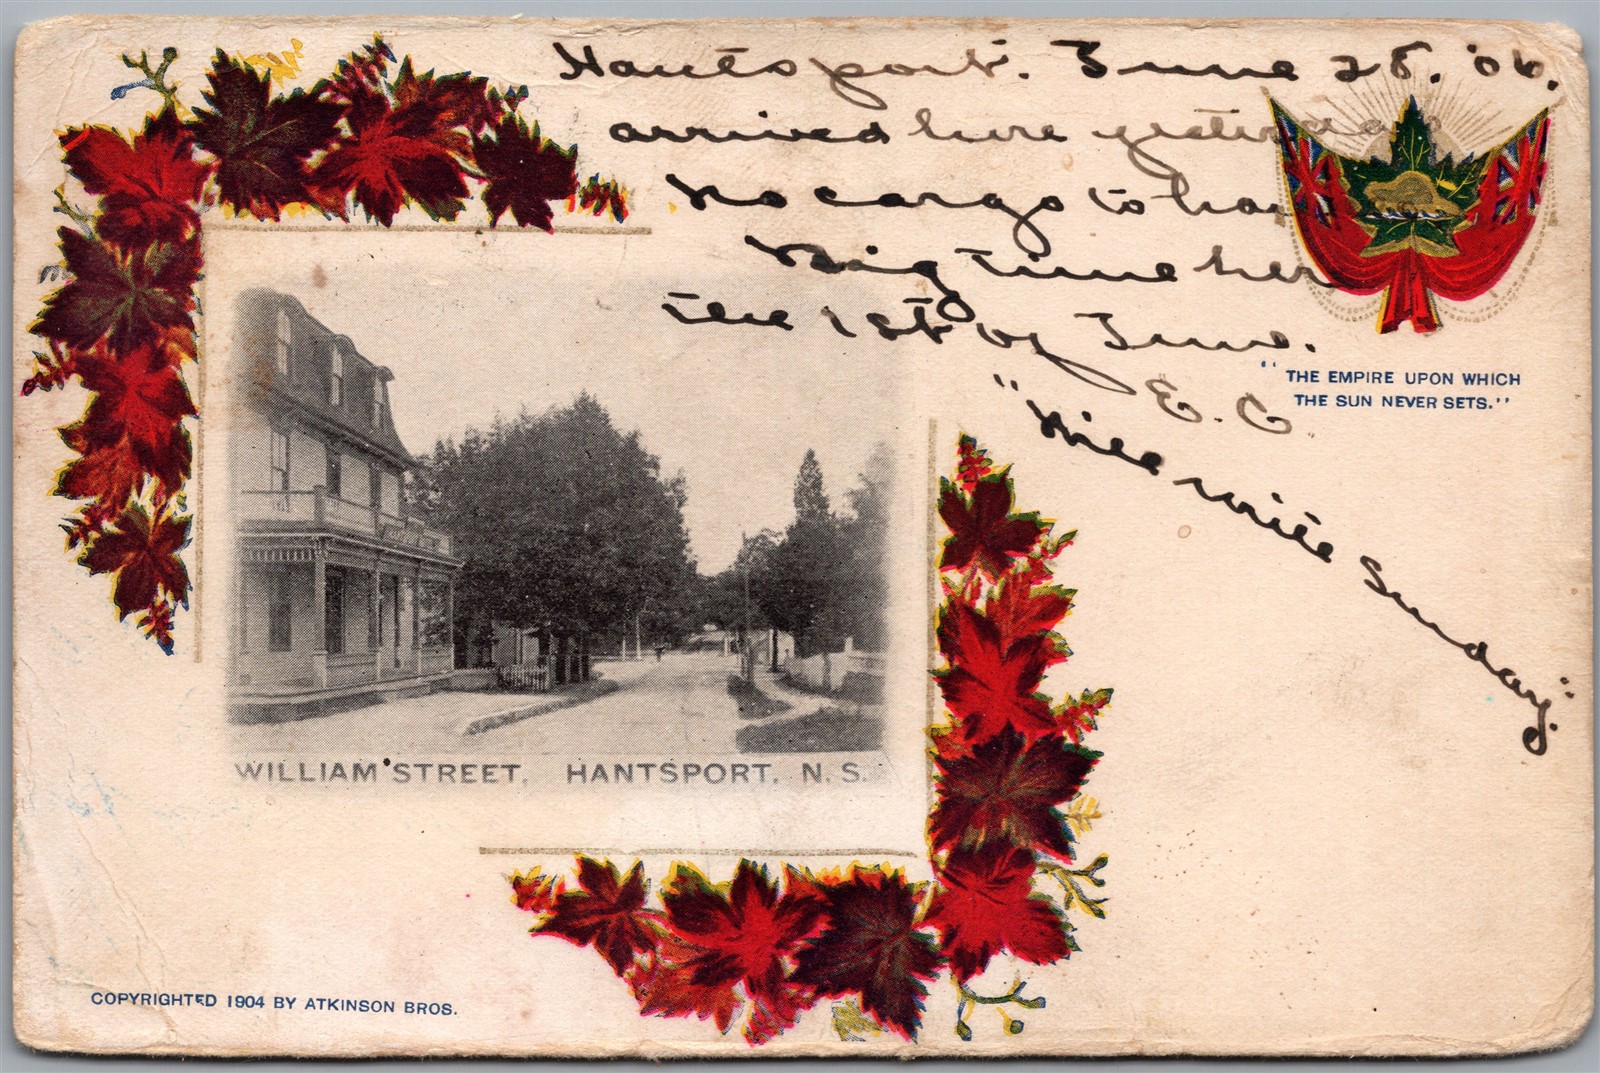 Hantsport. June 28. '06.
arrived here yesterday
no cargo to
Big time here
the 1st of June.
E. C.
"Will write Sunday."
"THE EMPIRE UPON WHICH
THE SUN NEVER SETS."
WILLIAM STREET, HANTSPORT, N. S.
COPYRIGHTED 1904 BY ATKINSON BROS.